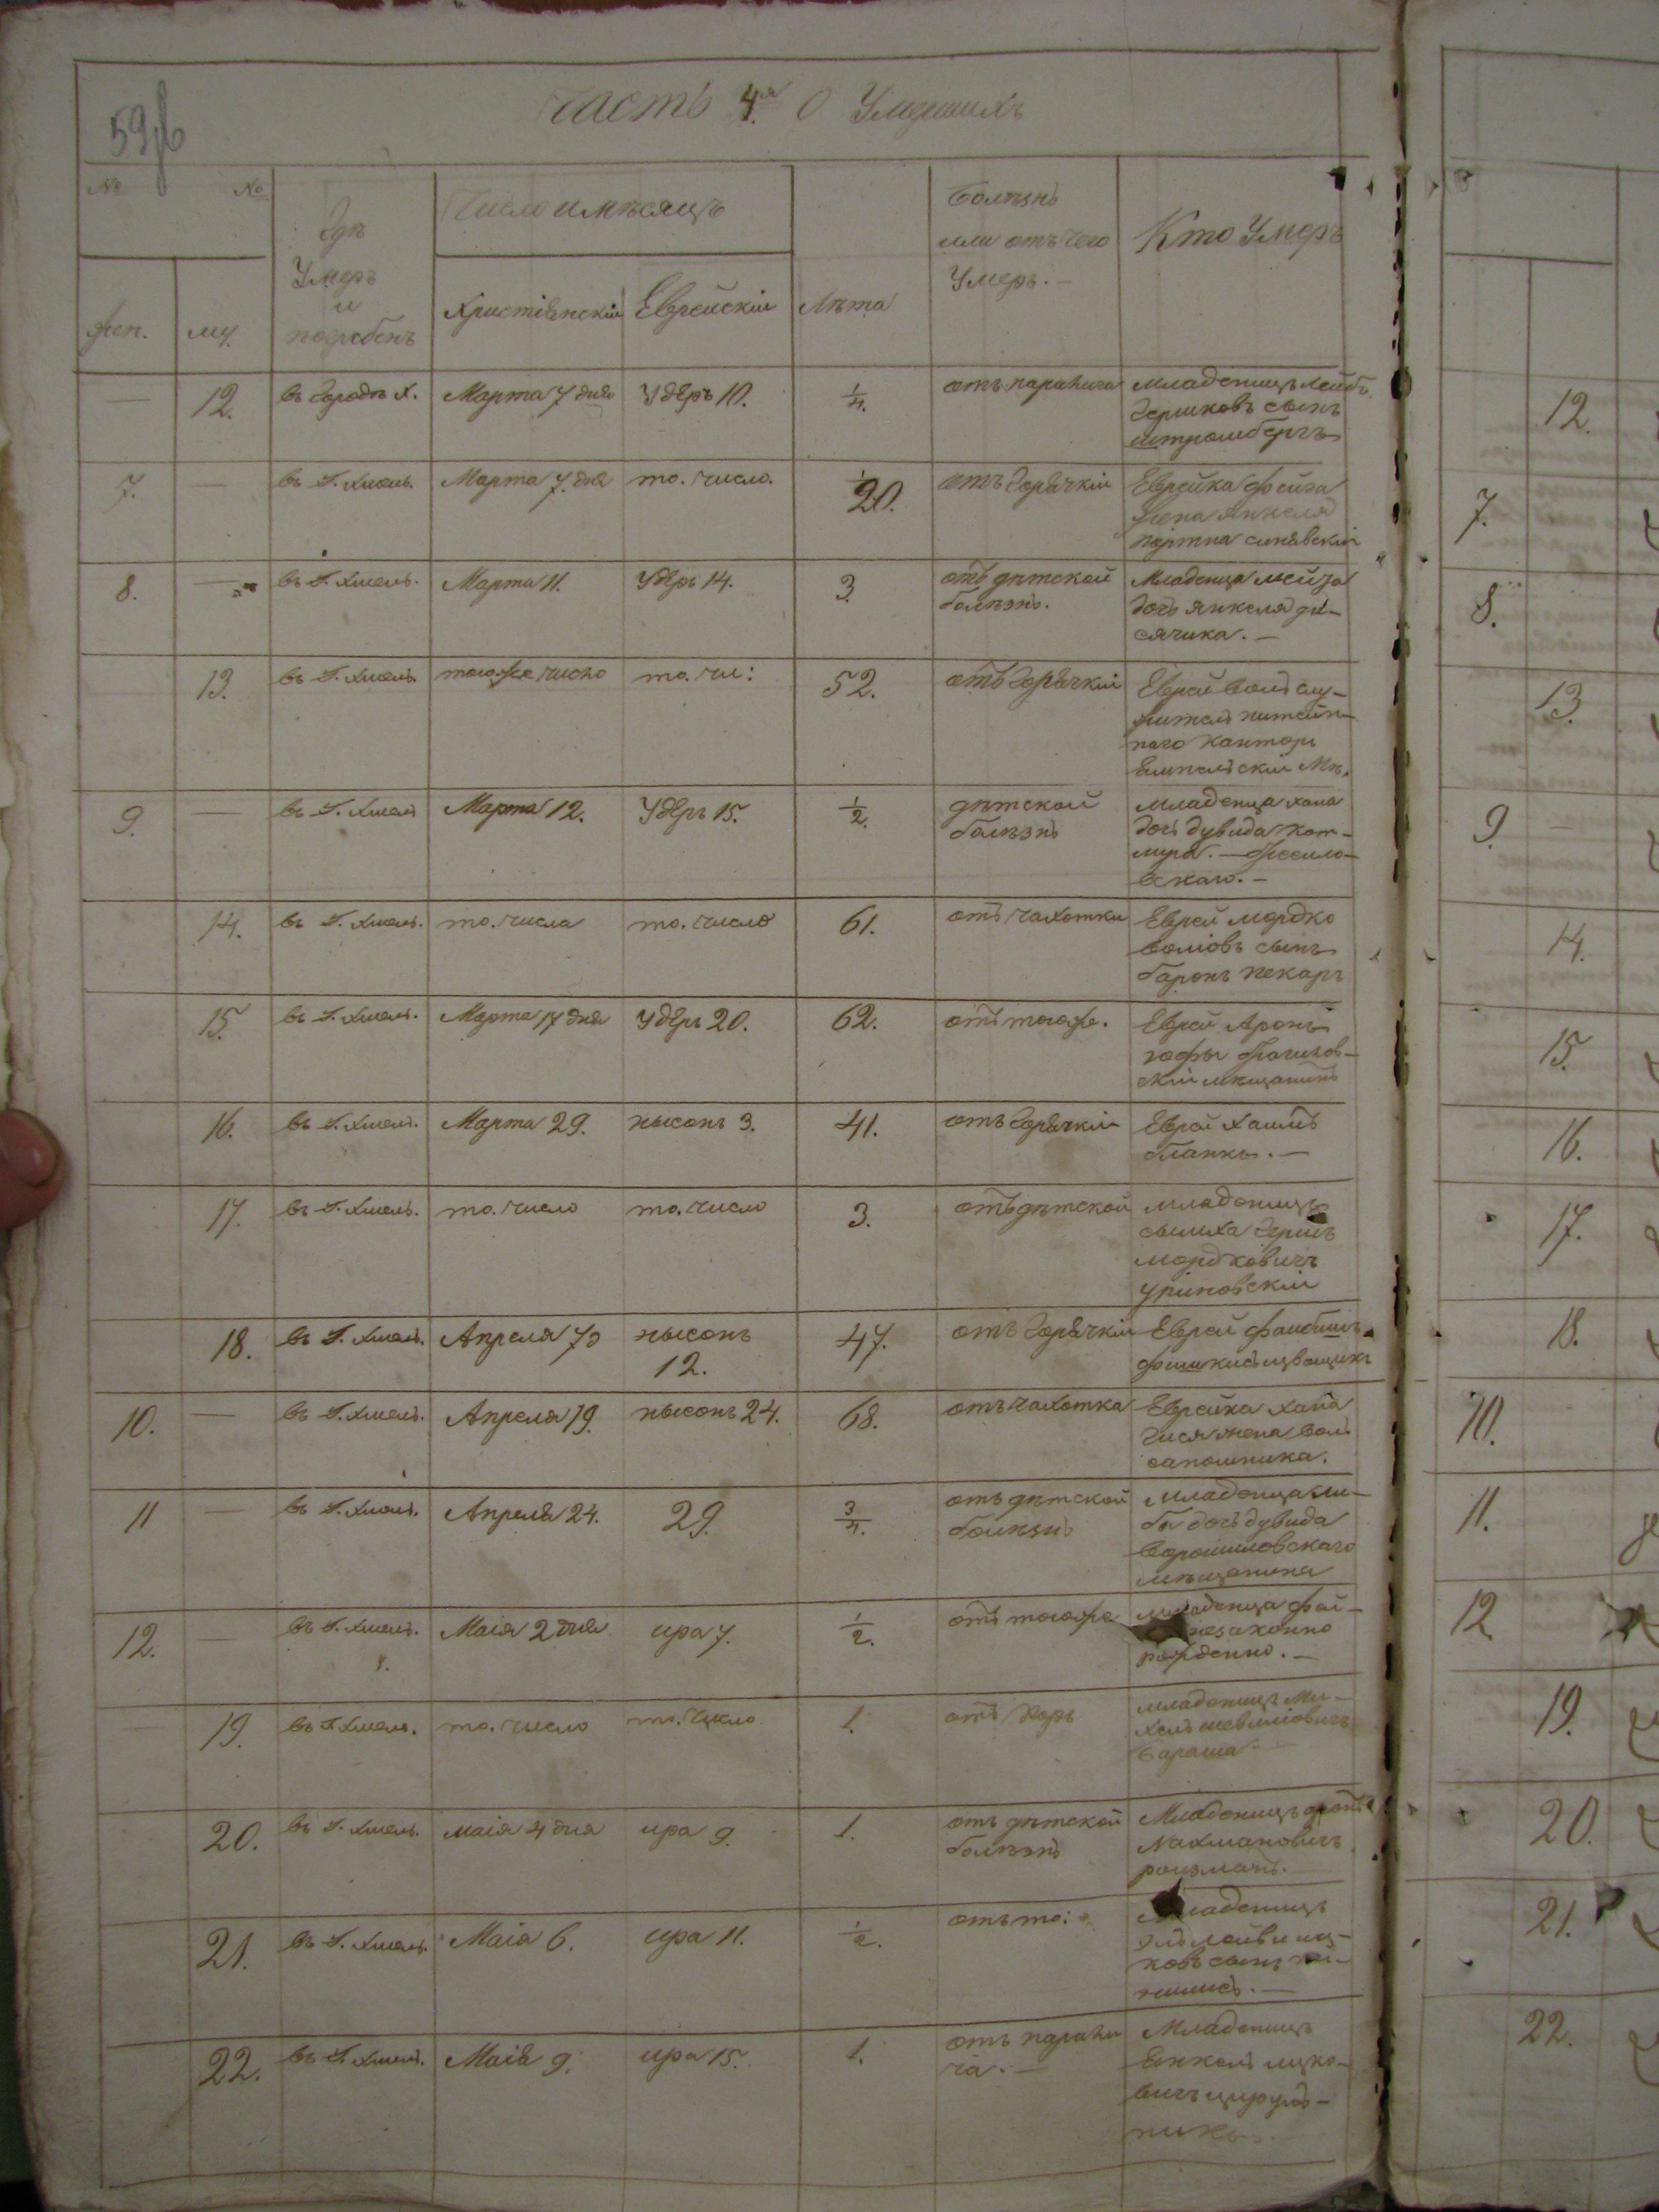 59
Часть 4я О Умершихъ
№ №
Гдѣ
Умеръ
и
погребенъ
Число и мѣсяцъ
Болѣзнь
или отъ чего
Умеръ. —
Кто Умеръ
жен. му. Христіянскій Еврейскій Лѣта
— 12. въ Городѣ Х. Марта 7 дня Удеръ 10. 1/4. отъ паралича Младенецъ Лейбъ
Гершковъ сынъ
штромбергъ
7. — въ Г. Хмель. Марта 7. дня то. число. 20. отъ Горячкіи Еврейка Фейга
жена Янкеля
портна синявскіи
8. — въ Г. Хмель. Марта 11. Удеръ 14. 3. отъ дѣтской
болѣзнь. Младенца Нейза
дочь янкеля ди-
сячика. —
13. въ Г. Хмель тогоже число то. чи: 52. отъ Горячкіи Еврей Волъ слу-
житель питейн-
наго канторы
9. — въ Г. Хмель Марта 12. Удеръ 15. 1/2. дѣтской
болѣзнь Младенца хана
дочь дувида кот-
ляра. —
14. въ Г. Хмель. то. числа то. число 61. отъ чахотки Еврей мордко
воліовъ сынъ
баронъ пекаръ
15. въ Г. Хмель. Марта 17 дня Удеръ 20. 62. отъ тогоже. Еврей Аронъ
скіи мещанинъ
16. въ Г. Хмель. Марта 29. нысонъ 3. 41. отъ Горячкіи Еврей Хаимъ
бланкъ. —
17. въ Г. Хмель. то. число то. число 3. отъ дѣтской младенецъ
сымха Гершъ
мордковичъ
уриновскіи
18. въ Г. Хмель. Апреля 7 нысонъ
12. 47. отъ Горячкіи Еврей Фаибишъ
10. — въ Г. Хмель. Апреля 19. нысонъ 24. 68. отъ чахотка Еврейка хана
Гися жена Волъ
сапошника.
11 — въ Г. Хмель. Апреля 24. 29. 3/4. отъ дѣтской
болѣзнь Младенца ли-
ба дочь дувида
ворошиловскаго
мѣщанина
12. — въ Г. Хмель. Маія 2 дня ира 7. 1/2. отъ тогоже Младенца фей-
незаконно
рожденно. —
19. въ Г. Хмель. то. число то. число 1. отъ Коръ младенецъ Ми-
хель шевлиовичъ
бараша —
20. въ Г. Хмель. маія 4 дня ира 9. 1. отъ дѣтской
болѣзнь Младенецъ
Нахмановичъ
роизманъ. —
21. въ Г. Хмель. Маія 6. ира 11. 1/2. отъ то: Младенецъ
ковъ сынъ
22. въ Г. Хмель. Маія 9. ира 15. 1. отъ парали
ча. — Младенецъ
Янкель ицко-
вичъ цируль-
никъ.
12.
7.
8.
13.
9.
14.
15.
16.
17.
18.
10.
11.
12
19.
20.
21.
22.